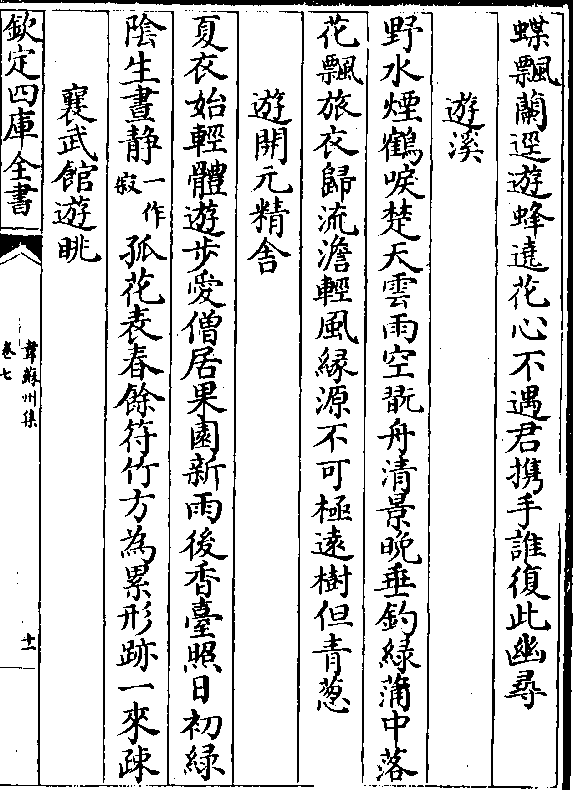 蝶飄蘭逕遊蜂遶花心不遇君攜手誰復此幽尋
遊溪
野水煙鶴唳楚天雲雨空翫舟清景晚垂釣綠蒲中落
花飄旅衣歸流澹輕風緣源不可極遠樹但青葱
遊開元精舍
夏衣始輕體遊步愛僧居果園新雨後香臺照日初緑
陰生晝静一作寂孤花表春餘符竹方為累形跡一來疎
襄武館遊眺
欽定四庫全書
韋蘇州集
卷七
十一